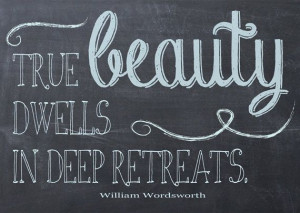 TRUE beauty
DWELLS
IN DEEP RETREATS.
William Wordsworth